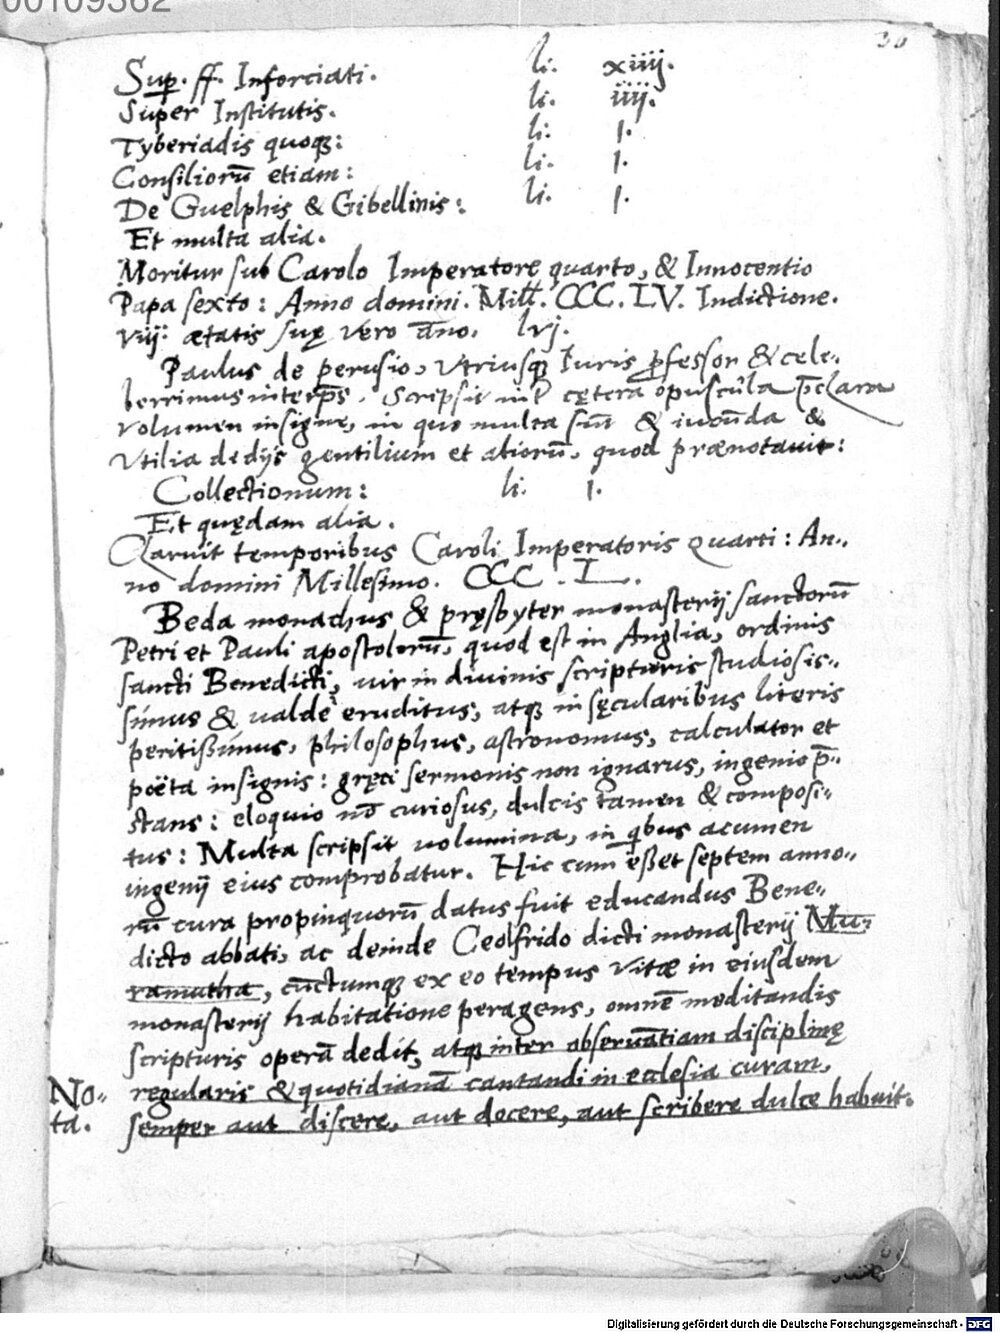 00109382
30
Sup. ff. Inforciati. li. xiiij.
Super Institutis. li. iiij.
Tyberiadis quoqȝ: li: 1.
Consiliorū etiam: li. 1.
De Guelphis & Gibellinis: li. 1.
Et multa alia.
Moritur sub Carolo Imperatore quarto, & Innocentio
Papa sexto: Anno domini. Mill. CCC. LV. Indictione.
viij: ætatis suę vero āno. lvj.
Paulus de perusio, vtriusqȝ Iuris ꝓfessor & cele-
berrimus interp̄s. Scripsit int̄ cętera opuscūla p̄clara
volumen insigne, in quo multa sūt & iucūnda &
vtilia de dijs gentilium et aliorū, quod prænotauit:
Collectionum: li. 1.
Et quędam alia.
Claruit temporibus Caroli Imperatoris quarti: An-
no domini Millesimo. CCC. L.
Beda monachus & pręsbyter monasterij sanctorū
Petri et Pauli apostolorū, quod est in Anglia, ordinis
sancti Benedicti, uir in diuinis scripturis studiosis-
simus & ualde eruditus, atqȝ in sęcularibus literis
peritißimus, philosophus, astronomus, calculator et
poëta insignis: gręci sermonis non ignarus, ingenio p̄-
stans: eloquio nō curiosus, dulcis tamen & composi-
tus: Multa scripsit uolumina, in qbus acumen
ingenij eius comprobatur. Hic cum eßet septem anno-
rū cura propinquorū datus fuit educandus Bene-
dicto abbati, ac deinde Ceolfrido dicti monasterij Mu-
ramutha, cūctumqȝ ex eo tempus vitæ in eiusdem
monasterij habitatione peragens, omnē meditandis
scripturis operā dedit, atqȝ inter obseruātiam disciplinę
No- regularis & quotidianā cantandi in ecclesia curam,
ta. semper aut discere, aut docere, aut scribere dulce habuit.
Digitalisierung gefördert durch die Deutsche Forschungsgemeinschaft - DFG